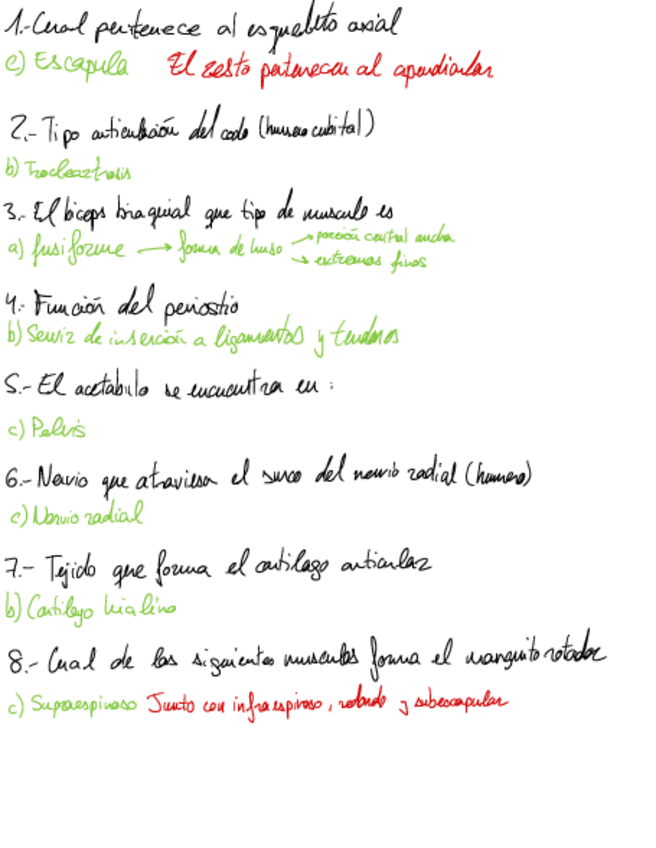 1.-Cual pertenece al esqueleto axial
c) Escapula El resto pertenecen al apendicular
2.- Tipo articulación del codo (humero cubital)
b) Trocleartrosis
3.- El biceps braquial que tipo de musculo es
a) fusiforme → forma de huso → porción central ancha
→ extremos finos
4.- Función del periostio
b) Servir de inserción a ligamentos y tendones
5.- El acetabulo se encuentra en :
c) Pelvis
6.- Nervio que atraviesa el surco del nervio radial (humero)
c) Nervio radial
7.- Tejido que forma el cartilago articular
b) Cartilago hialino
8.- Cual de los siguientes musculos forma el manguito rotador
c) Supraespinoso Junto con infraespinoso, redondo y subescapular